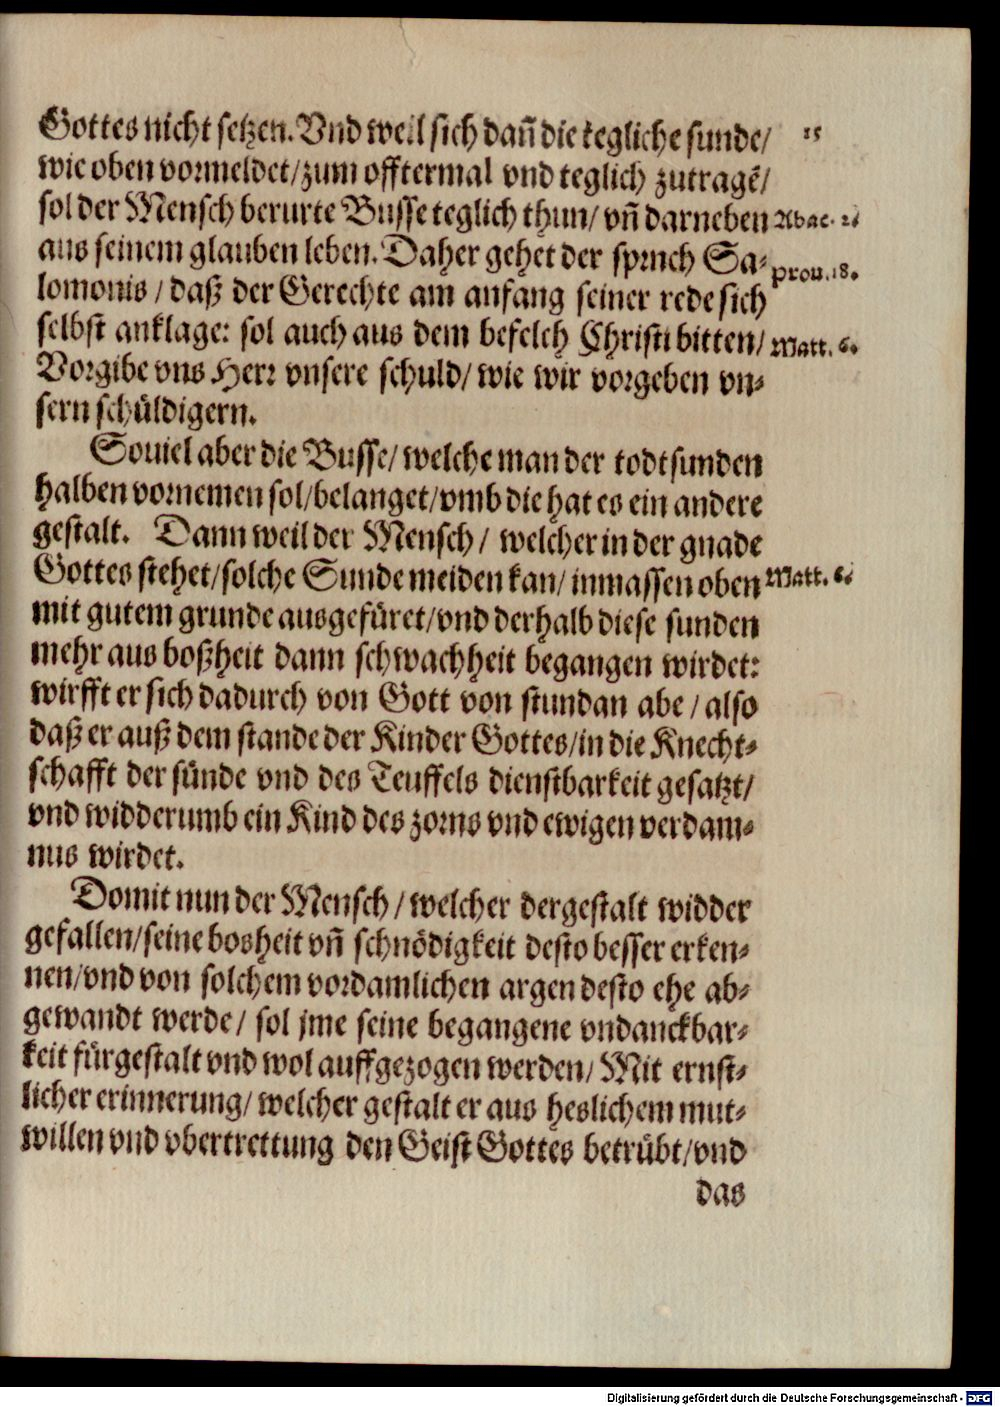 Gottes nicht setzen. Vnd weil sich dañ die tegliche sunde/ 15
wie oben vormeldet/zum offtermal vnd teglich zutragē/
sol der Mensch berurte Busse teglich thun/ vñ darneben Abac. 2.
aus seinem glauben leben. Daher gehet der spruch Sa-
lomonis / daß der Gerechte am anfang seiner rede sich prou. 18.
selbst anklage: sol auch aus dem befelch Christi bitten/ Matt. 6.
Vorgibe vns Herr vnsere schuld/ wie wir vorgeben vn-
sern schüldigern.
Souiel aber die Busse/ welche man der todtsunden
halben vornemen sol/belanget/vmb die hat es ein andere
gestalt. Dann weil der Mensch / welcher in der gnade
Gottes stehet/solche Sunde meiden kan/ inmassen oben Matt. 6.
mit gutem grunde ausgefüret/vnd derhalb diese sunden
mehr aus boßheit dann schwachheit begangen wirdet:
wirfft er sich dadurch von Gott von stundan abe / also
daß er auß dem stande der Kinder Gottes/in die Knecht-
schafft der sünde vnd des Teuffels dienstbarkeit gesatzt/
vnd widderumb ein Kind des zorns vnd ewigen verdam-
nus wirdet.
Domit nun der Mensch / welcher dergestalt widder
gefallen/seine bosheit vñ schnödigkeit desto besser erken-
nen/vnd von solchem vordamlichen argen desto ehe ab-
gewandt werde/ sol jme seine begangene vndanckbar-
keit fürgestalt vnd wol auffgezogen werden/ Mit ernst-
licher erinnerung/ welcher gestalt er aus heslichem mut-
willen vnd vbertrettung den Geist Gottes betrübt/vnd
das
Digitalisierung gefördert durch die Deutsche Forschungsgemeinschaft - DFG